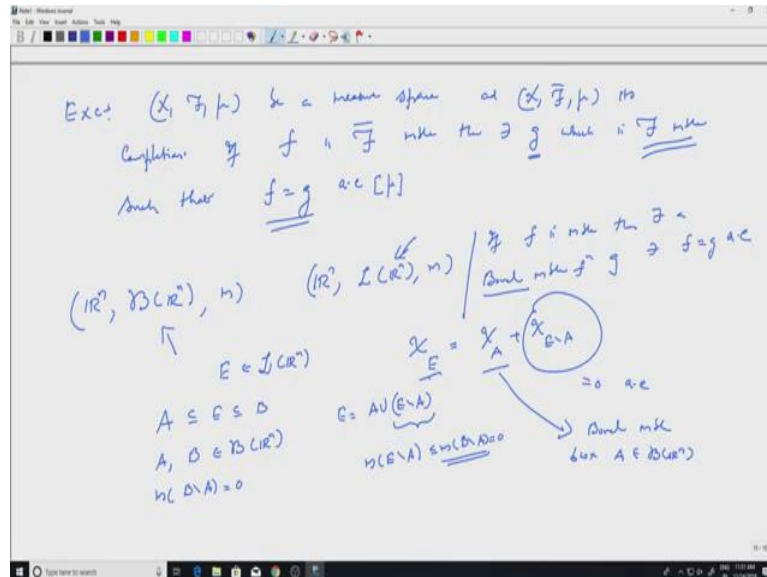 Note1 - Windows Journal
File Edit View Insert Actions Tools Help
Exc: (X, F, μ) be a measure space and (X, F̅, μ) its
Completion. If f is F̅ mble then ∃ g which is F mble
Such that f = g a.e [μ]
(ℝⁿ, B(ℝⁿ), m) (ℝⁿ, L(ℝⁿ), m)
If f is mble then ∃ a
Borel mble fⁿ g ∋ f = g a.e
E ∈ L(ℝⁿ)
A ⊆ E ⊆ B
A, B ∈ B(ℝⁿ)
m(B\A) = 0
E = A ∪ (E\A)
m(E\A) ≤ m(B\A) = 0
χ_E = χ_A + χ_{E\A}
= 0 a.e
Borel mble
bcz A ∈ B(ℝⁿ)
Type here to search
11:01 AM